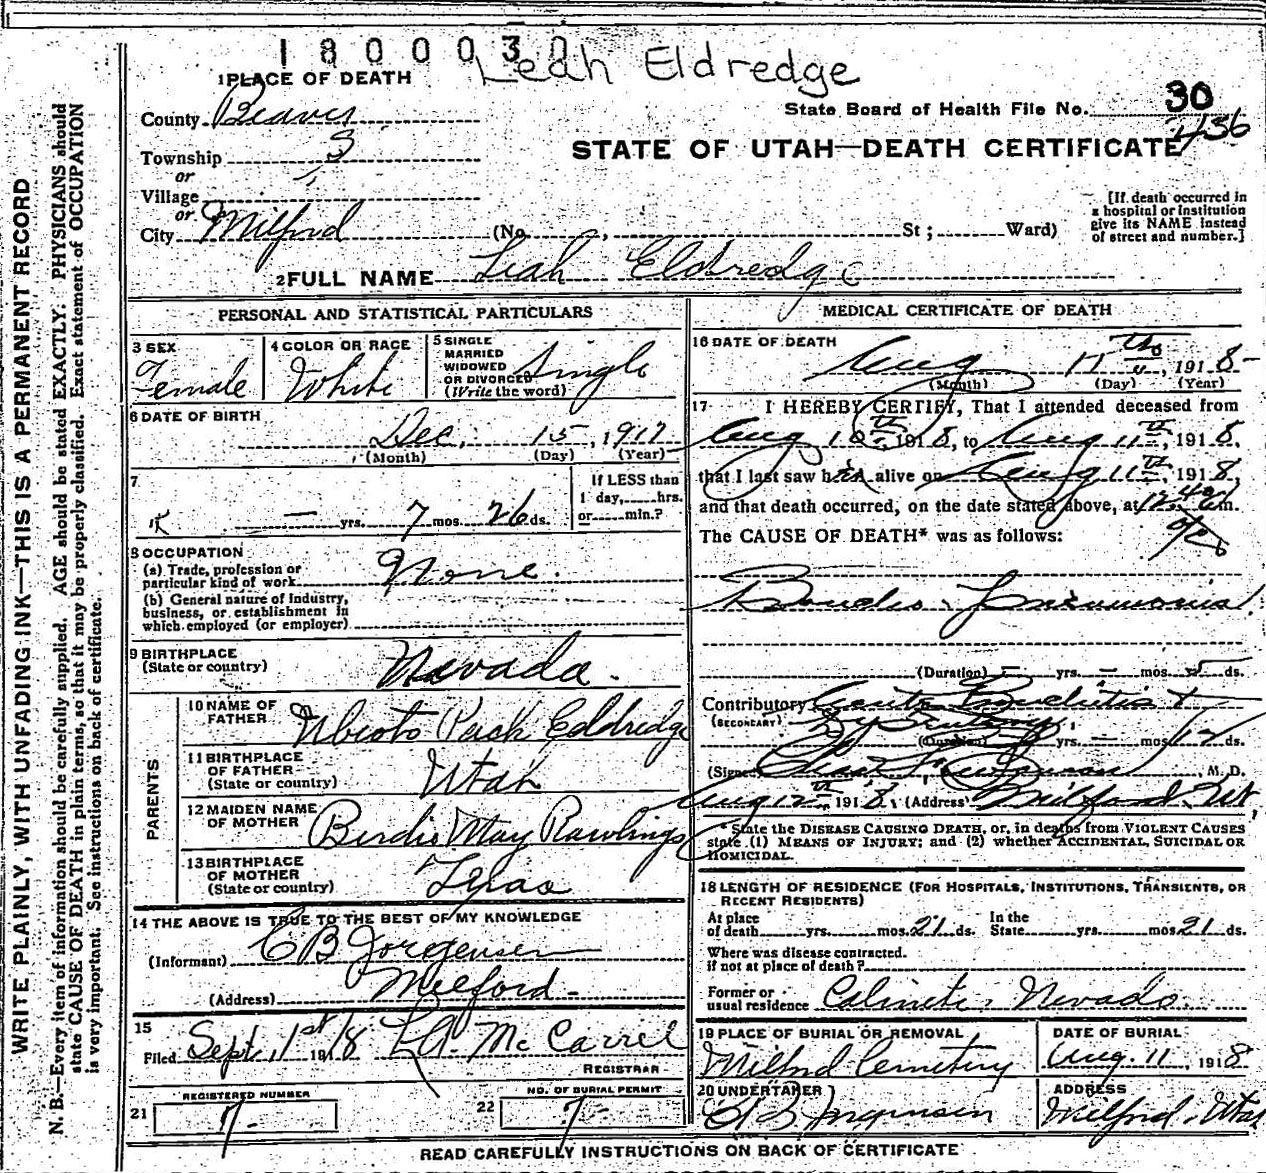 1800030
Leah Eldredge
1 PLACE OF DEATH
State Board of Health File No. 30
436
County Beaver
STATE OF UTAH—DEATH CERTIFICATE
Township 3
or
Village
or
City Milford
(No. , St ; Ward)
[If death occurred in
a hospital or institution
give its NAME instead
of street and number.]
2 FULL NAME Leah Eldredge
PERSONAL AND STATISTICAL PARTICULARS
3 SEX
Female
4 COLOR OR RACE
White
5 SINGLE
MARRIED
WIDOWED
OR DIVORCED
(Write the word)
Single
6 DATE OF BIRTH
Dec. 15, 1917
(Month) (Day) (Year)
7
— yrs. 7 mos. 26 ds.
If LESS than
1 day, hrs.
or min.?
8 OCCUPATION
(a) Trade, profession or
particular kind of work None.
(b) General nature of industry,
business, or establishment in
which employed (or employer)
9 BIRTHPLACE
(State or country) Nevada.
PARENTS
10 NAME OF
FATHER Eldredge
11 BIRTHPLACE
OF FATHER
(State or country) Utah
12 MAIDEN NAME
OF MOTHER Birdie May Rawlings
13 BIRTHPLACE
OF MOTHER
(State or country) Texas
14 THE ABOVE IS TRUE TO THE BEST OF MY KNOWLEDGE
(Informant) C B Jorgensen
(Address) Milford
15
Filed Sept. 1st 1918 L.A. McCarrel
REGISTRAR
21
REGISTERED NUMBER
7
22
NO. OF BURIAL PERMIT
7
MEDICAL CERTIFICATE OF DEATH
16 DATE OF DEATH
Aug 11th, 1918
(Month) (Day) (Year)
17 I HEREBY CERTIFY, That I attended deceased from
Aug 10th, 1918, to Aug 11th, 1918,
that I last saw her alive on Aug 11th, 1918,
and that death occurred, on the date stated above, at m.
The CAUSE OF DEATH* was as follows:
Broncho-Pneumonia.
(Duration) — yrs. — mos. 5 ds.
Contributory
(SECONDARY)
(Duration) yrs. — mos. 12 ds.
(Signed) , M. D.
Aug 12th, 1918, (Address) Milford, Ut
*State the DISEASE CAUSING DEATH, or, in deaths from VIOLENT CAUSES
state (1) MEANS OF INJURY; and (2) whether ACCIDENTAL, SUICIDAL OR
HOMICIDAL.
18 LENGTH OF RESIDENCE (FOR HOSPITALS, INSTITUTIONS, TRANSIENTS, OR
RECENT RESIDENTS)
At place
of death yrs. mos. 21 ds.
In the
State yrs. mos. 21 ds.
Where was disease contracted.
if not at place of death?
Former or
usual residence Nevada.
19 PLACE OF BURIAL OR REMOVAL
Milford Cemetery
DATE OF BURIAL
Aug. 11, 1918
20 UNDERTAKER
C B Jorgensen
ADDRESS
Milford, Utah
READ CAREFULLY INSTRUCTIONS ON BACK OF CERTIFICATE
WRITE PLAINLY, WITH UNFADING INK—THIS IS A PERMANENT RECORD
N. B.—Every item of information should be carefully supplied. AGE should be stated EXACTLY. PHYSICIANS should
state CAUSE OF DEATH in plain terms, so that it may be properly classified. Exact statement of OCCUPATION
is very important. See instructions on back of certificate.